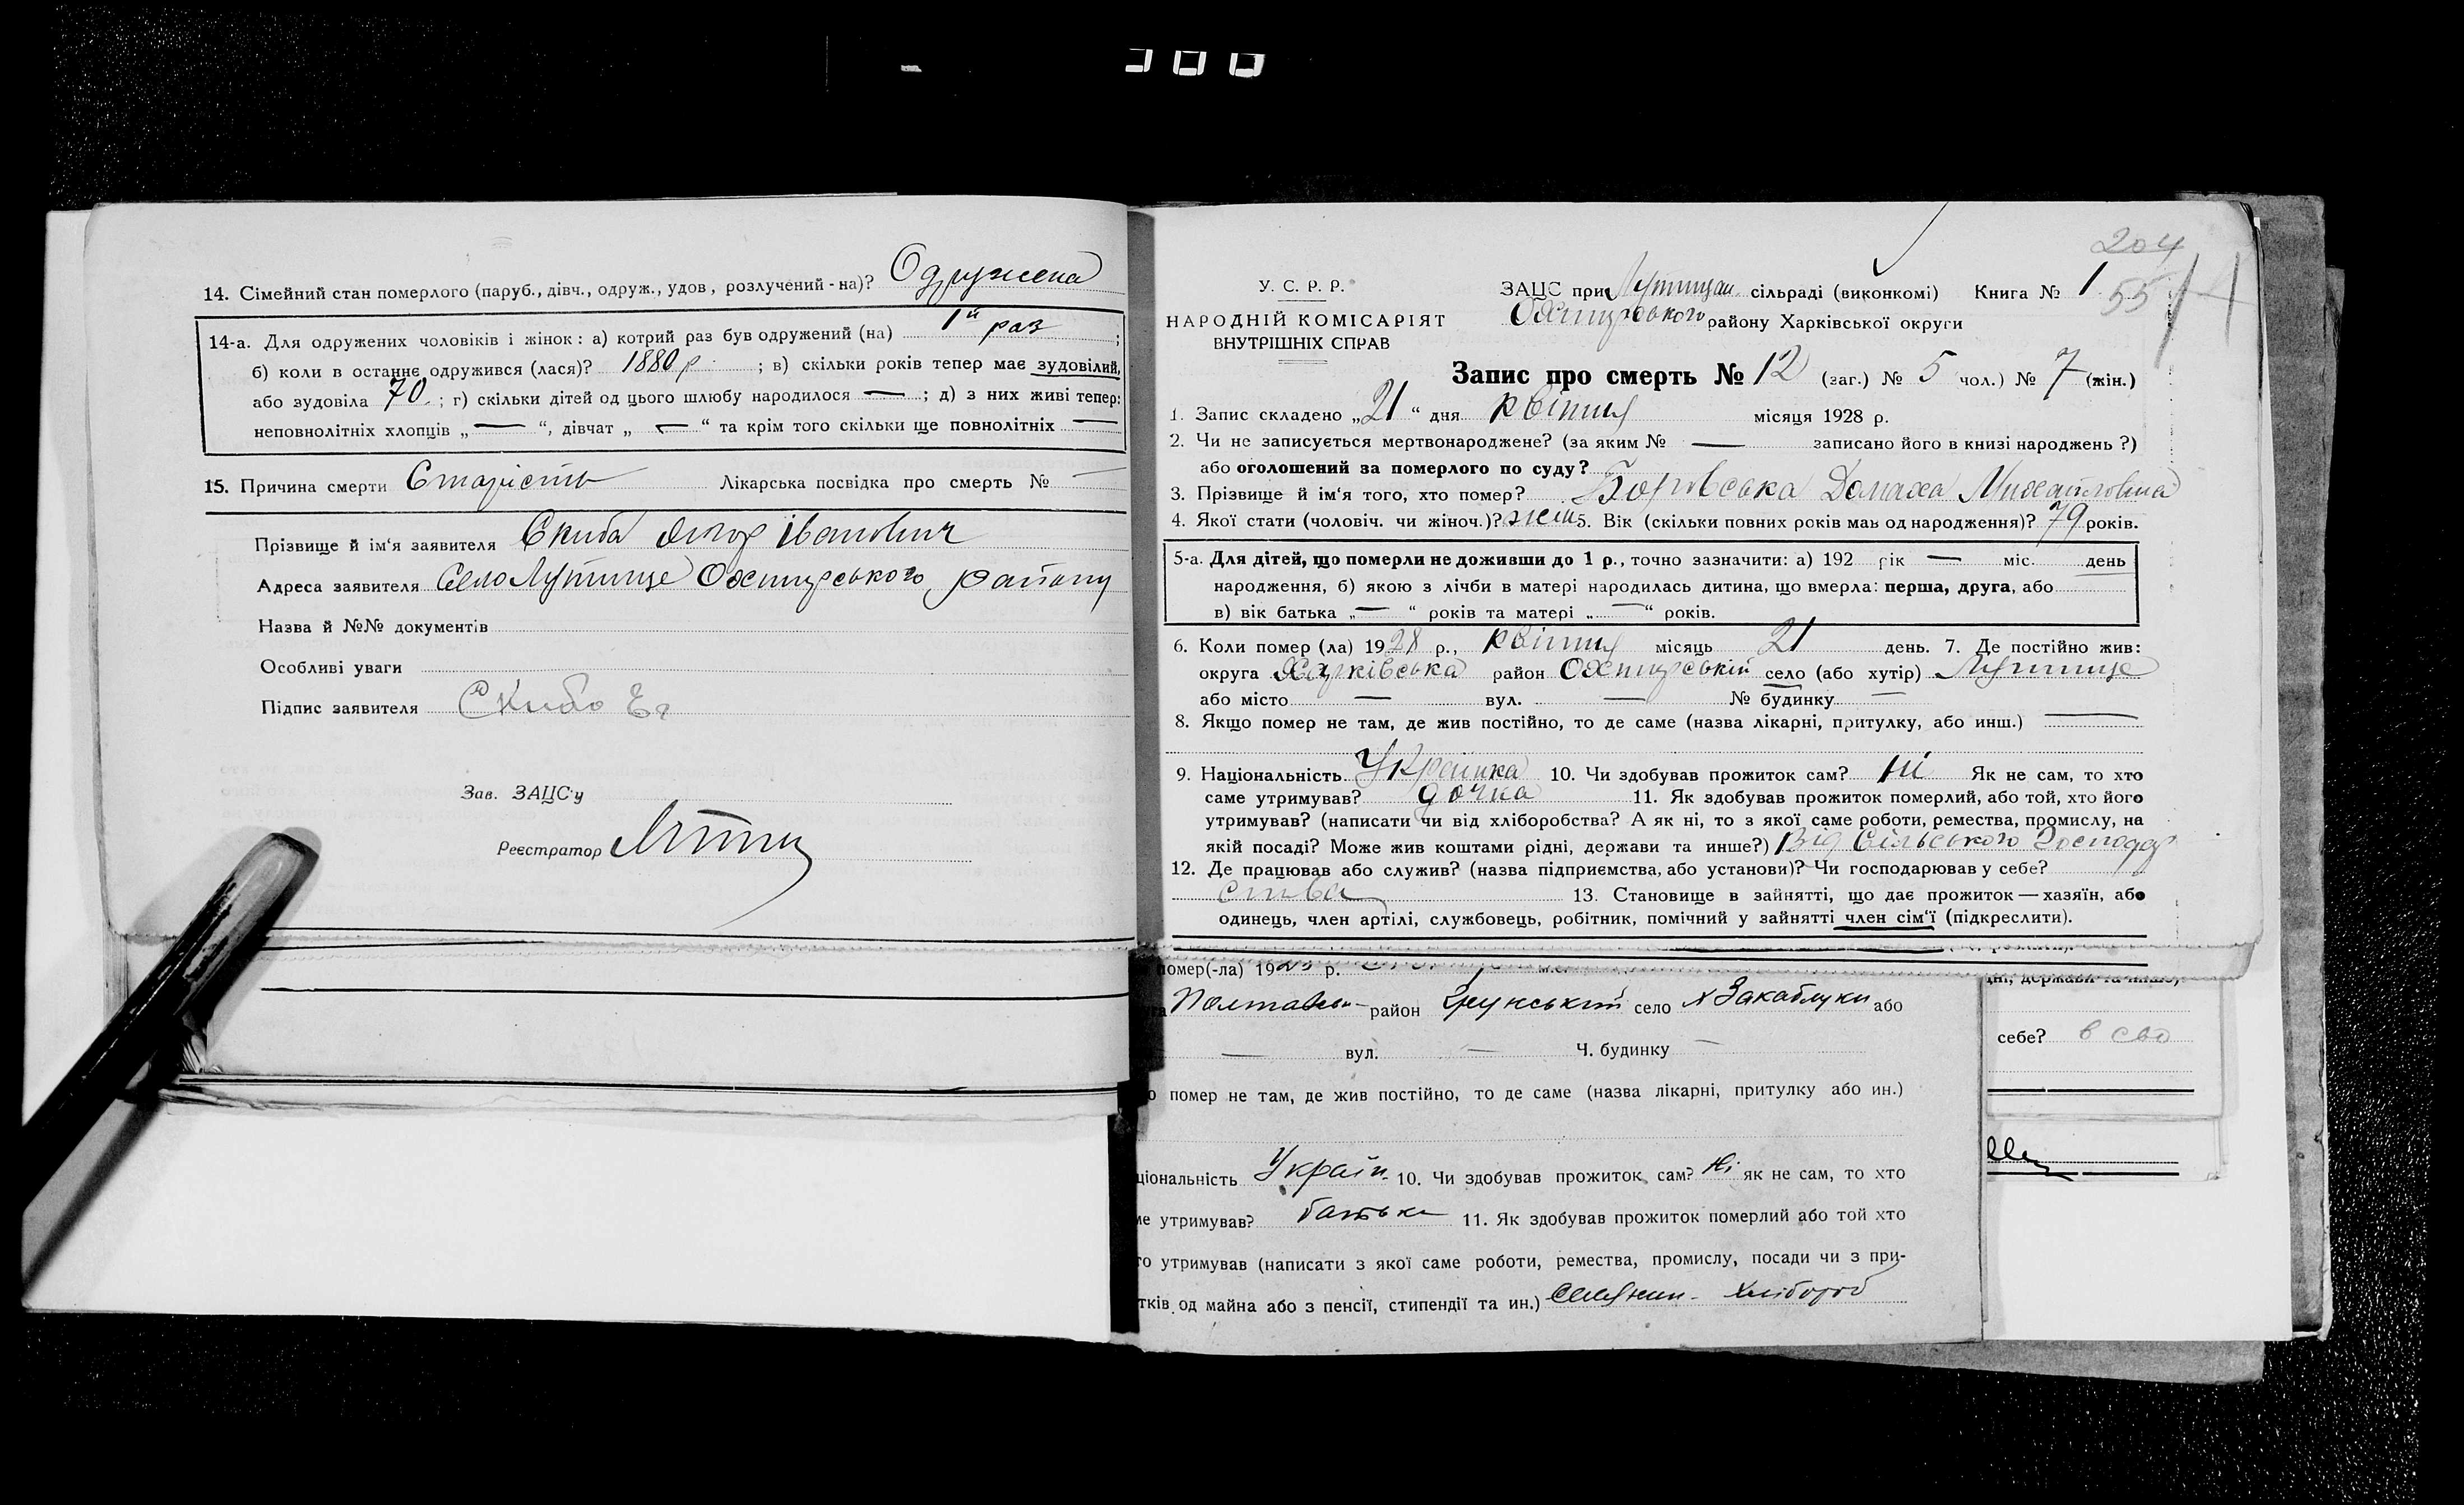 14. Сімейний стан померлого (паруб., дівч., одруж., удов, розлучений - на)? Одружена
14-а. Для одружених чоловіків і жінок: а) котрий раз був одружений (на) 1й раз ;
б) коли в останнє одружився (лася)? 1880 р ; в) скільки років тепер має зудовілий,
або зудовіла 70 ; г) скільки дітей од цього шлюбу народилося — ; д) з них живі тепер:
неповнолітніх хлопців „ — “, дівчат „ — “ та крім того скільки ще повнолітніх —
15. Причина смерти Старість Лікарська посвідка про смерть № —
Прізвище й ім'я заявителя Скиба Іванович
Адреса заявителя Село Лутище Охтирського району
Назва й №№ документів
Особливі уваги
Підпис заявителя Скиба Ег
Зав. ЗАЦС'у
Реєстратор
204
У. С. Р. Р. ЗАЦС при Лутищан. сільраді (виконкомі) Книга № 1 55
НАРОДНІЙ КОМІСАРІЯТ Охтирського району Харківської округи
ВНУТРІШНІХ СПРАВ
Запис про смерть № 12 (заг.) № 5 чол.) № 7 (жін.)
1. Запис складено „21“ дня квітня місяця 1928 р.
2. Чи не записується мертвонароджене? (за яким № — записано його в книзі народжень ?)
або оголошений за померлого по суду?
3. Прізвище й ім'я того, хто помер? Боровська Домаха Михайловна
4. Якої стати (чоловіч. чи жіноч.)? жін 5. Вік (скільки повних років мав од народження)? 79 років.
5-а. Для дітей, що померли не доживши до 1 р., точно зазначити: а) 192 рік — міс. день
народження, б) якою з лічби в матері народилась дитина, що вмерла: перша, друга, або
в) вік батька „ — “ років та матері „ — “ років.
6. Коли помер (ла) 1928 р., квітня місяць 21 день. 7. Де постійно жив:
округа Харківська район Охтирській село (або хутір) Лутище
або місто — вул. — № будинку —
8. Якщо помер не там, де жив постійно, то де саме (назва лікарні, притулку, або инш.) —
9. Національність Українка 10. Чи здобував прожиток сам? Ні Як не сам, то хто
саме утримував? дочка 11. Як здобував прожиток померлий, або той, хто його
утримував? (написати чи від хліборобства? А як ні, то з якої саме роботи, ремества, промислу, на
якій посаді? Може жив коштами рідні, держави та инше?) Від Сільського Господар
12. Де працював або служив? (назва підприємства, або установи)? Чи господарював у себе?
ства 13. Становище в зайнятті, що дає прожиток — хазяїн, або
одинець, член артілі, службовець, робітник, помічний у зайнятті член сім'ї (підкреслити).
помер(-ла) 19 р.
Полтавськ район село х Закаблуки або
— вул. — Ч. будинку —
помер не там, де жив постійно, то де саме (назва лікарні, притулку або ин.)
ціональність Україн. 10. Чи здобував прожиток сам? Ні як не сам, то хто
ме утримував? батьки 11. Як здобував прожиток померлий або той хто
го утримував (написати з якої саме роботи, ремества, промислу, посади чи з при-
тків од майна або з пенсії, стипендії та ин.) Хлібороб
дні, держави та инше,
себе? в сво